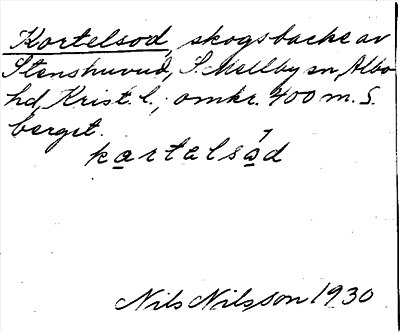 Kortelsod, skogsbacke av
Stenshuvud, S. Mellby sn, Albo
hd, Krist. l., omkr. 400 m. S.
berget.
kartelsåd
Nils Nilsson 1930